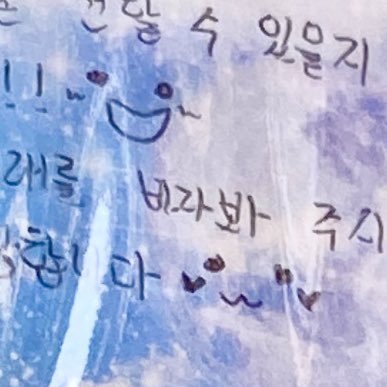 전달 수 있을지
!!
래를 바라봐 주시
합니다